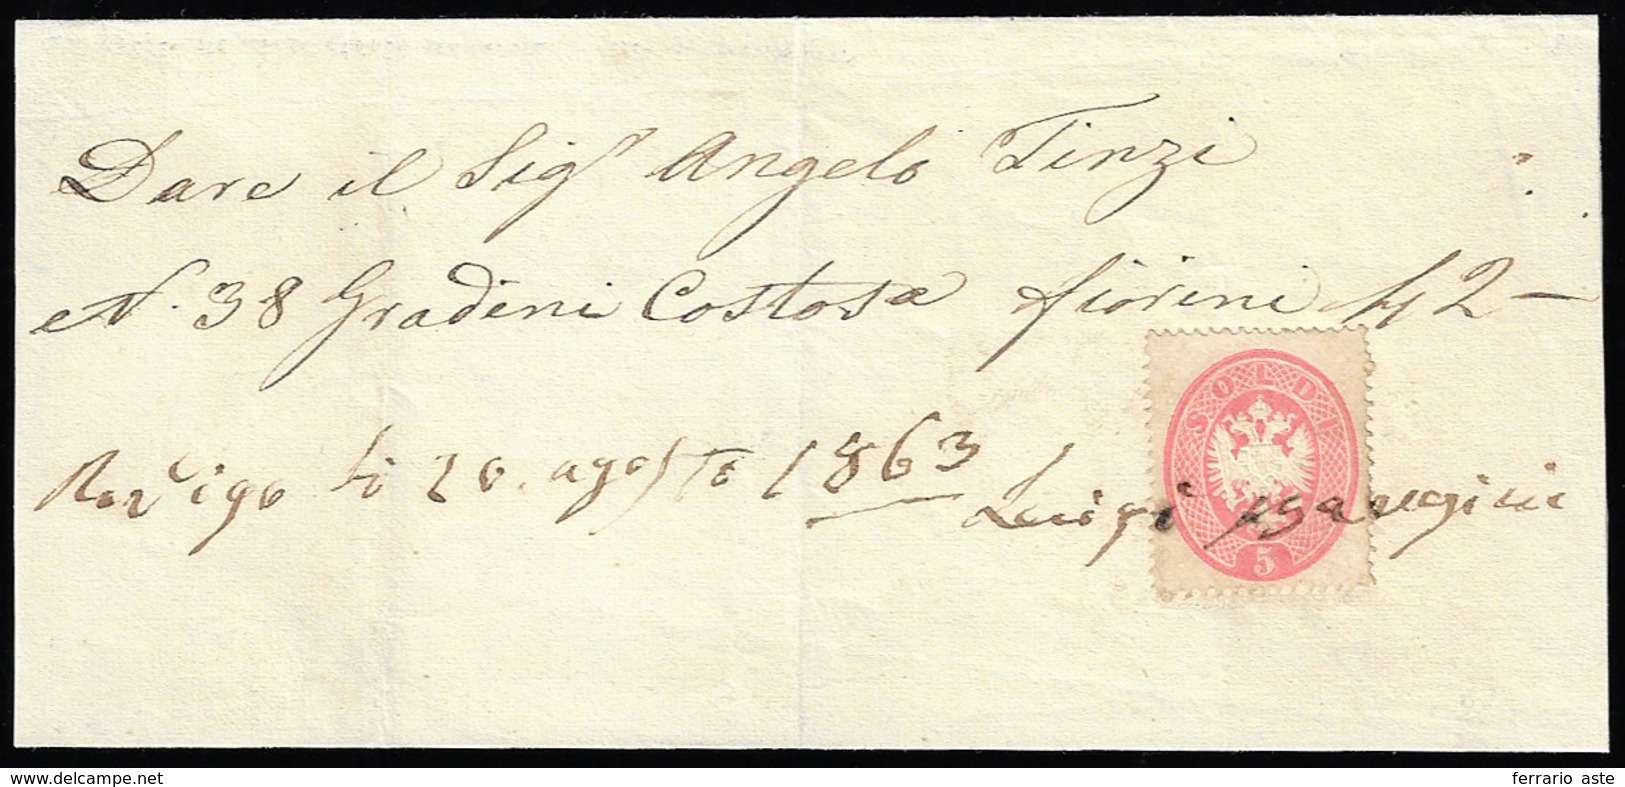 Dare il Sigr Angelo Tinzi
N. 38 Gradeni Costosa fiorini 42 —
SOLDI
Rovigo li 20. agosto 1863 Luigi
5
www.delcampe.net
ferrario aste